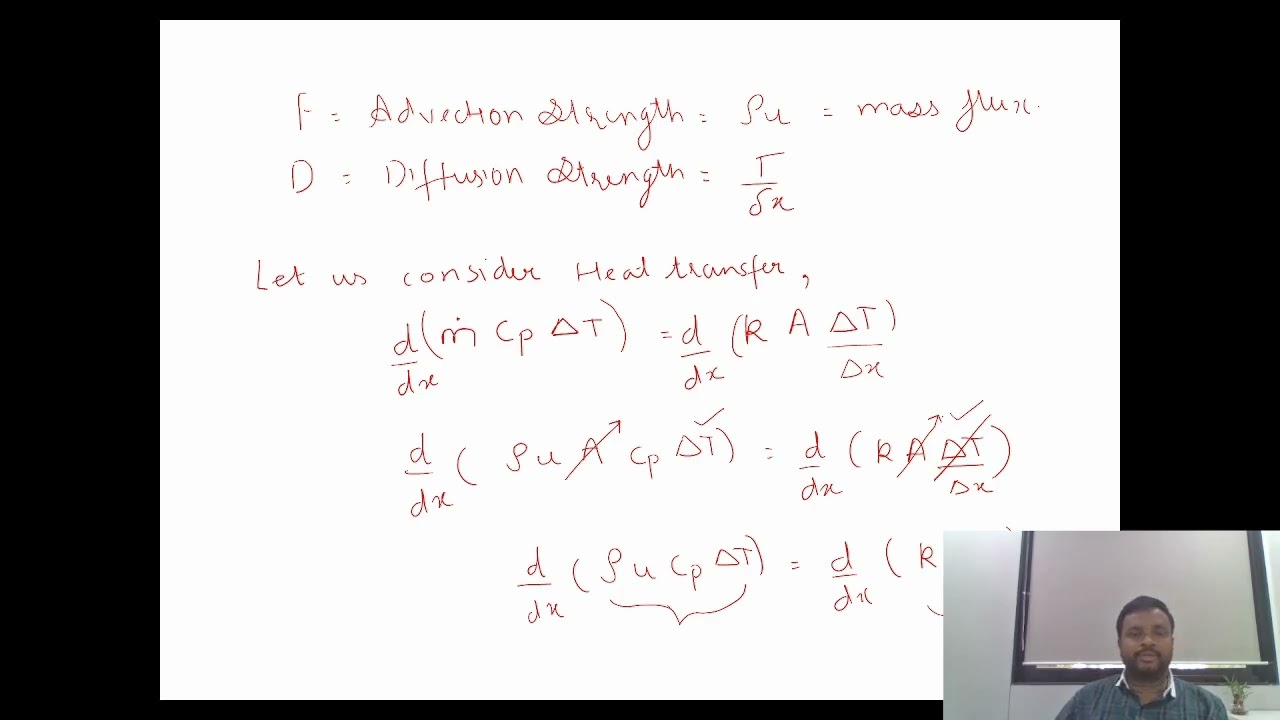 F = Advection Strength = ρu = mass flux.
D = Diffusion Strength = Γ/δx
Let us consider Heat transfer,
d/dx (ṁ Cp ΔT) = d/dx (k A ΔT/Δx)
d/dx ( ρu A Cp ΔT) = d/dx ( k A ΔT/Δx )
d/dx ( ρu Cp ΔT) = d/dx ( k